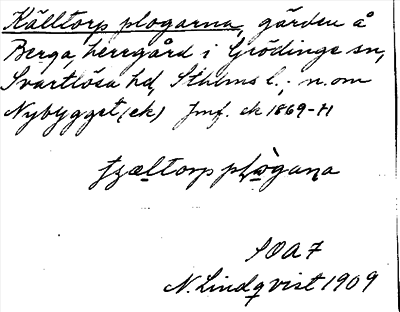 Källtorp plogarna, gärden å
Berga, herrgård i Grödinge sn,
Svartlösa hd, Sthlms l.; n. om
Nybygget (ek) Jmf. ek 1869-H
SOA 7
N. Lindqvist 1909